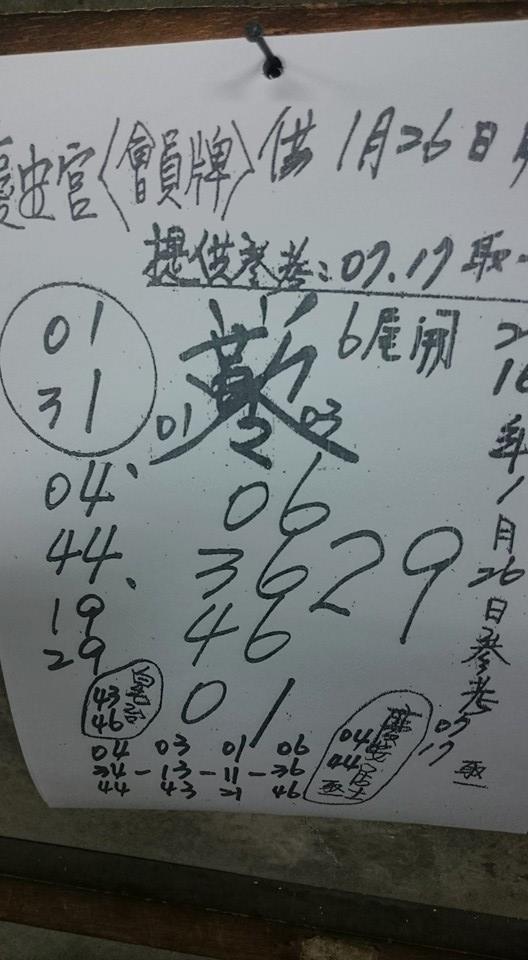 安宮〈會員牌〉供1月26日
提供參考:07.17取
01
31
6尾開
01 2 03
04、
44、
19
29
06
36
46
29
01
2016年1月26日參考
07
17
43
46
04 03 01 06
34-13-11-36
44 43 21 46
04
44
居士